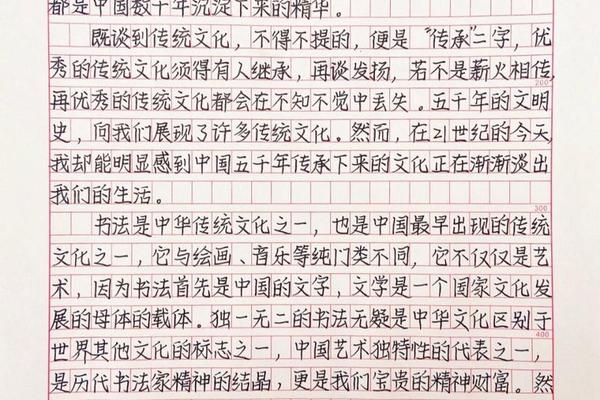 都是中国数千年沉淀下来的精华。
既谈到传统文化，不得不提的，便是“传承”二字，优
秀的传统文化须得有人继承，再谈发扬，若不是薪火相传，
200
再优秀的传统文化都会在不知不觉中丢失。五千年的文明
史，向我们展现了许多传统文化。然而，在21世纪的今天，
我却能明显感到中国五千年传承下来的文化正在渐渐淡出
我们的生活。
300
书法是中华传统文化之一，也是中国最早出现的传统
文化之一，它与绘画、音乐等纯门类不同，它不仅仅是艺
术，因为书法首先是中国的文字，文学是一个国家文化发
展的母体的载体。独一无二的书法无疑是中华文化区别于
400
世界其他文化的标志之一，中国艺术独特性的代表之一，
是历代书法家精神的结晶，更是我们宝贵的精神财富。然